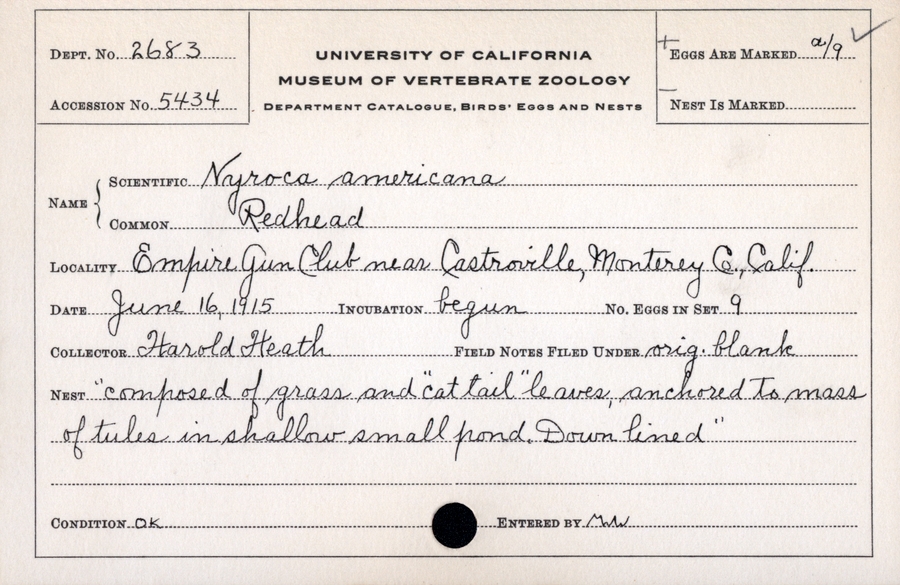 DEPT. NO. 2683
ACCESSION NO. 5434
UNIVERSITY OF CALIFORNIA
MUSEUM OF VERTEBRATE ZOOLOGY
DEPARTMENT CATALOGUE, BIRDS' EGGS AND NESTS
+ EGGS ARE MARKED a/9 ✓
– NEST IS MARKED
NAME { SCIENTIFIC Nyroca americana
COMMON Redhead
LOCALITY Empire Gun Club near Castroville, Monterey Co., Calif.
DATE June 16, 1915 INCUBATION begun NO. EGGS IN SET 9
COLLECTOR Harold Heath FIELD NOTES FILED UNDER orig. blank
NEST "composed of grass and "cat tail" leaves, anchored to mass
of tules in shallow small pond. Down lined"
CONDITION OK ENTERED BY